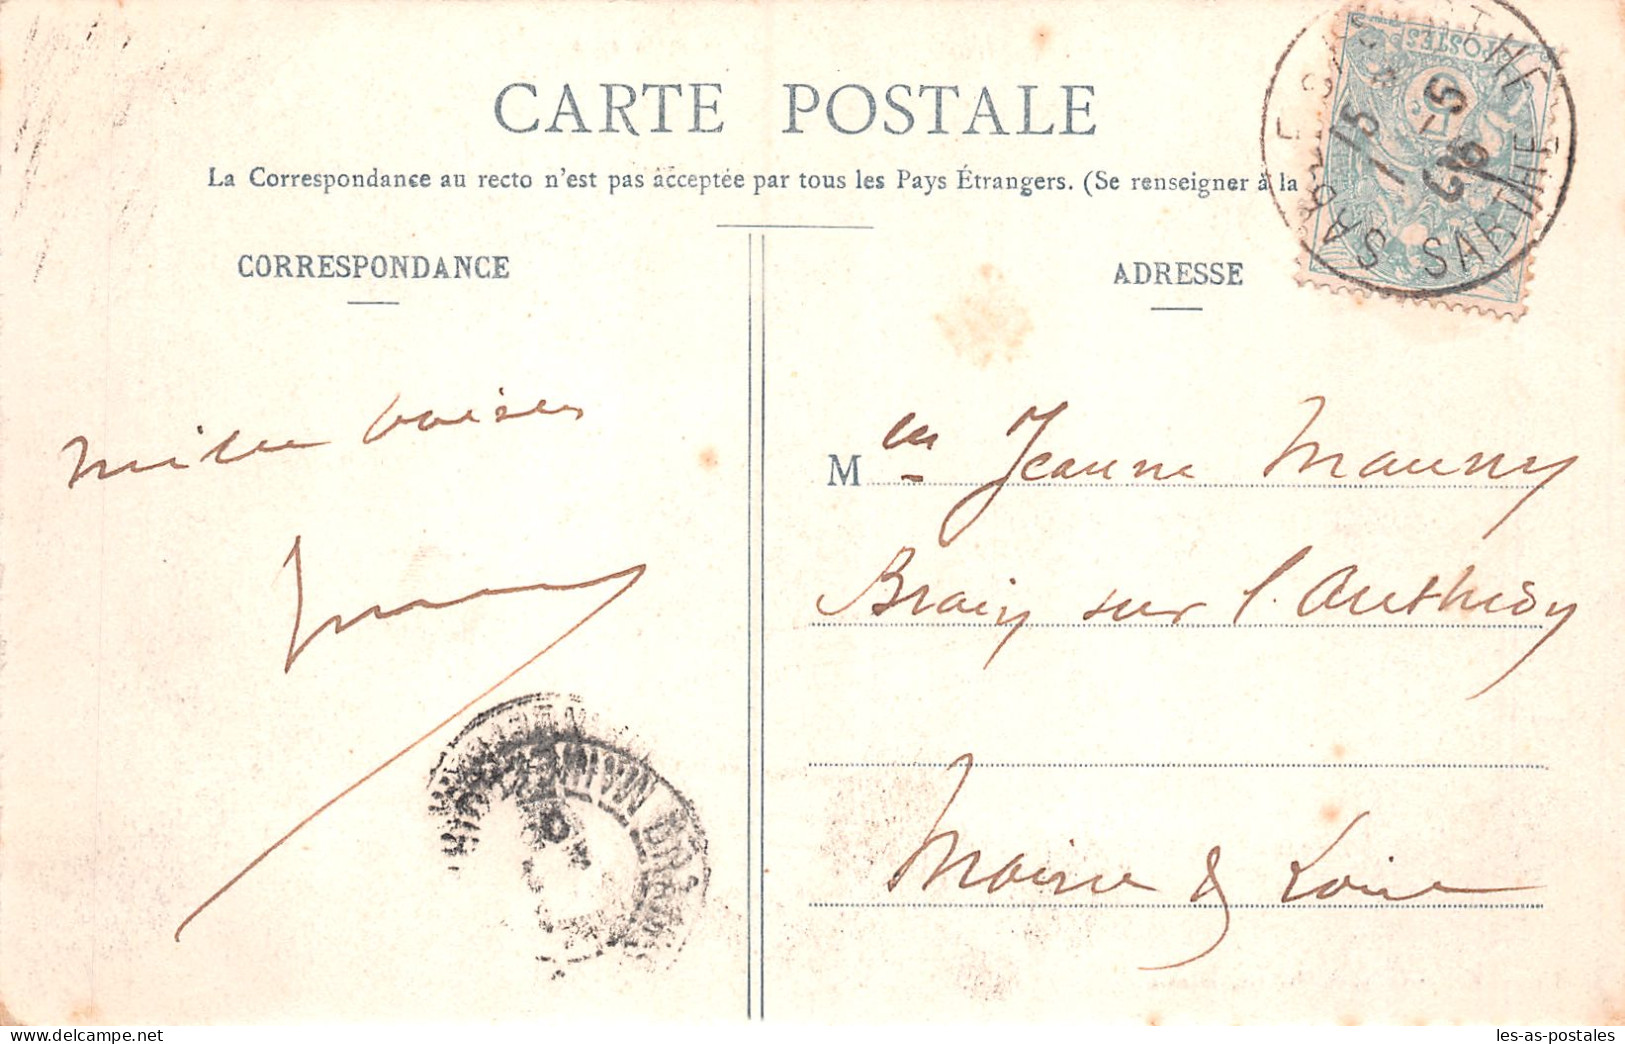 CARTE POSTALE
La Correspondance au recto n'est pas acceptée par tous les Pays Étrangers. (Se renseigner à la
CORRESPONDANCE
ADRESSE
POSTES
5
SARTHE
mille baisers
M lle Jeanne Mauny
Brain sur l'Authion
Maine & Loire
delcampe.net
les-as-postales